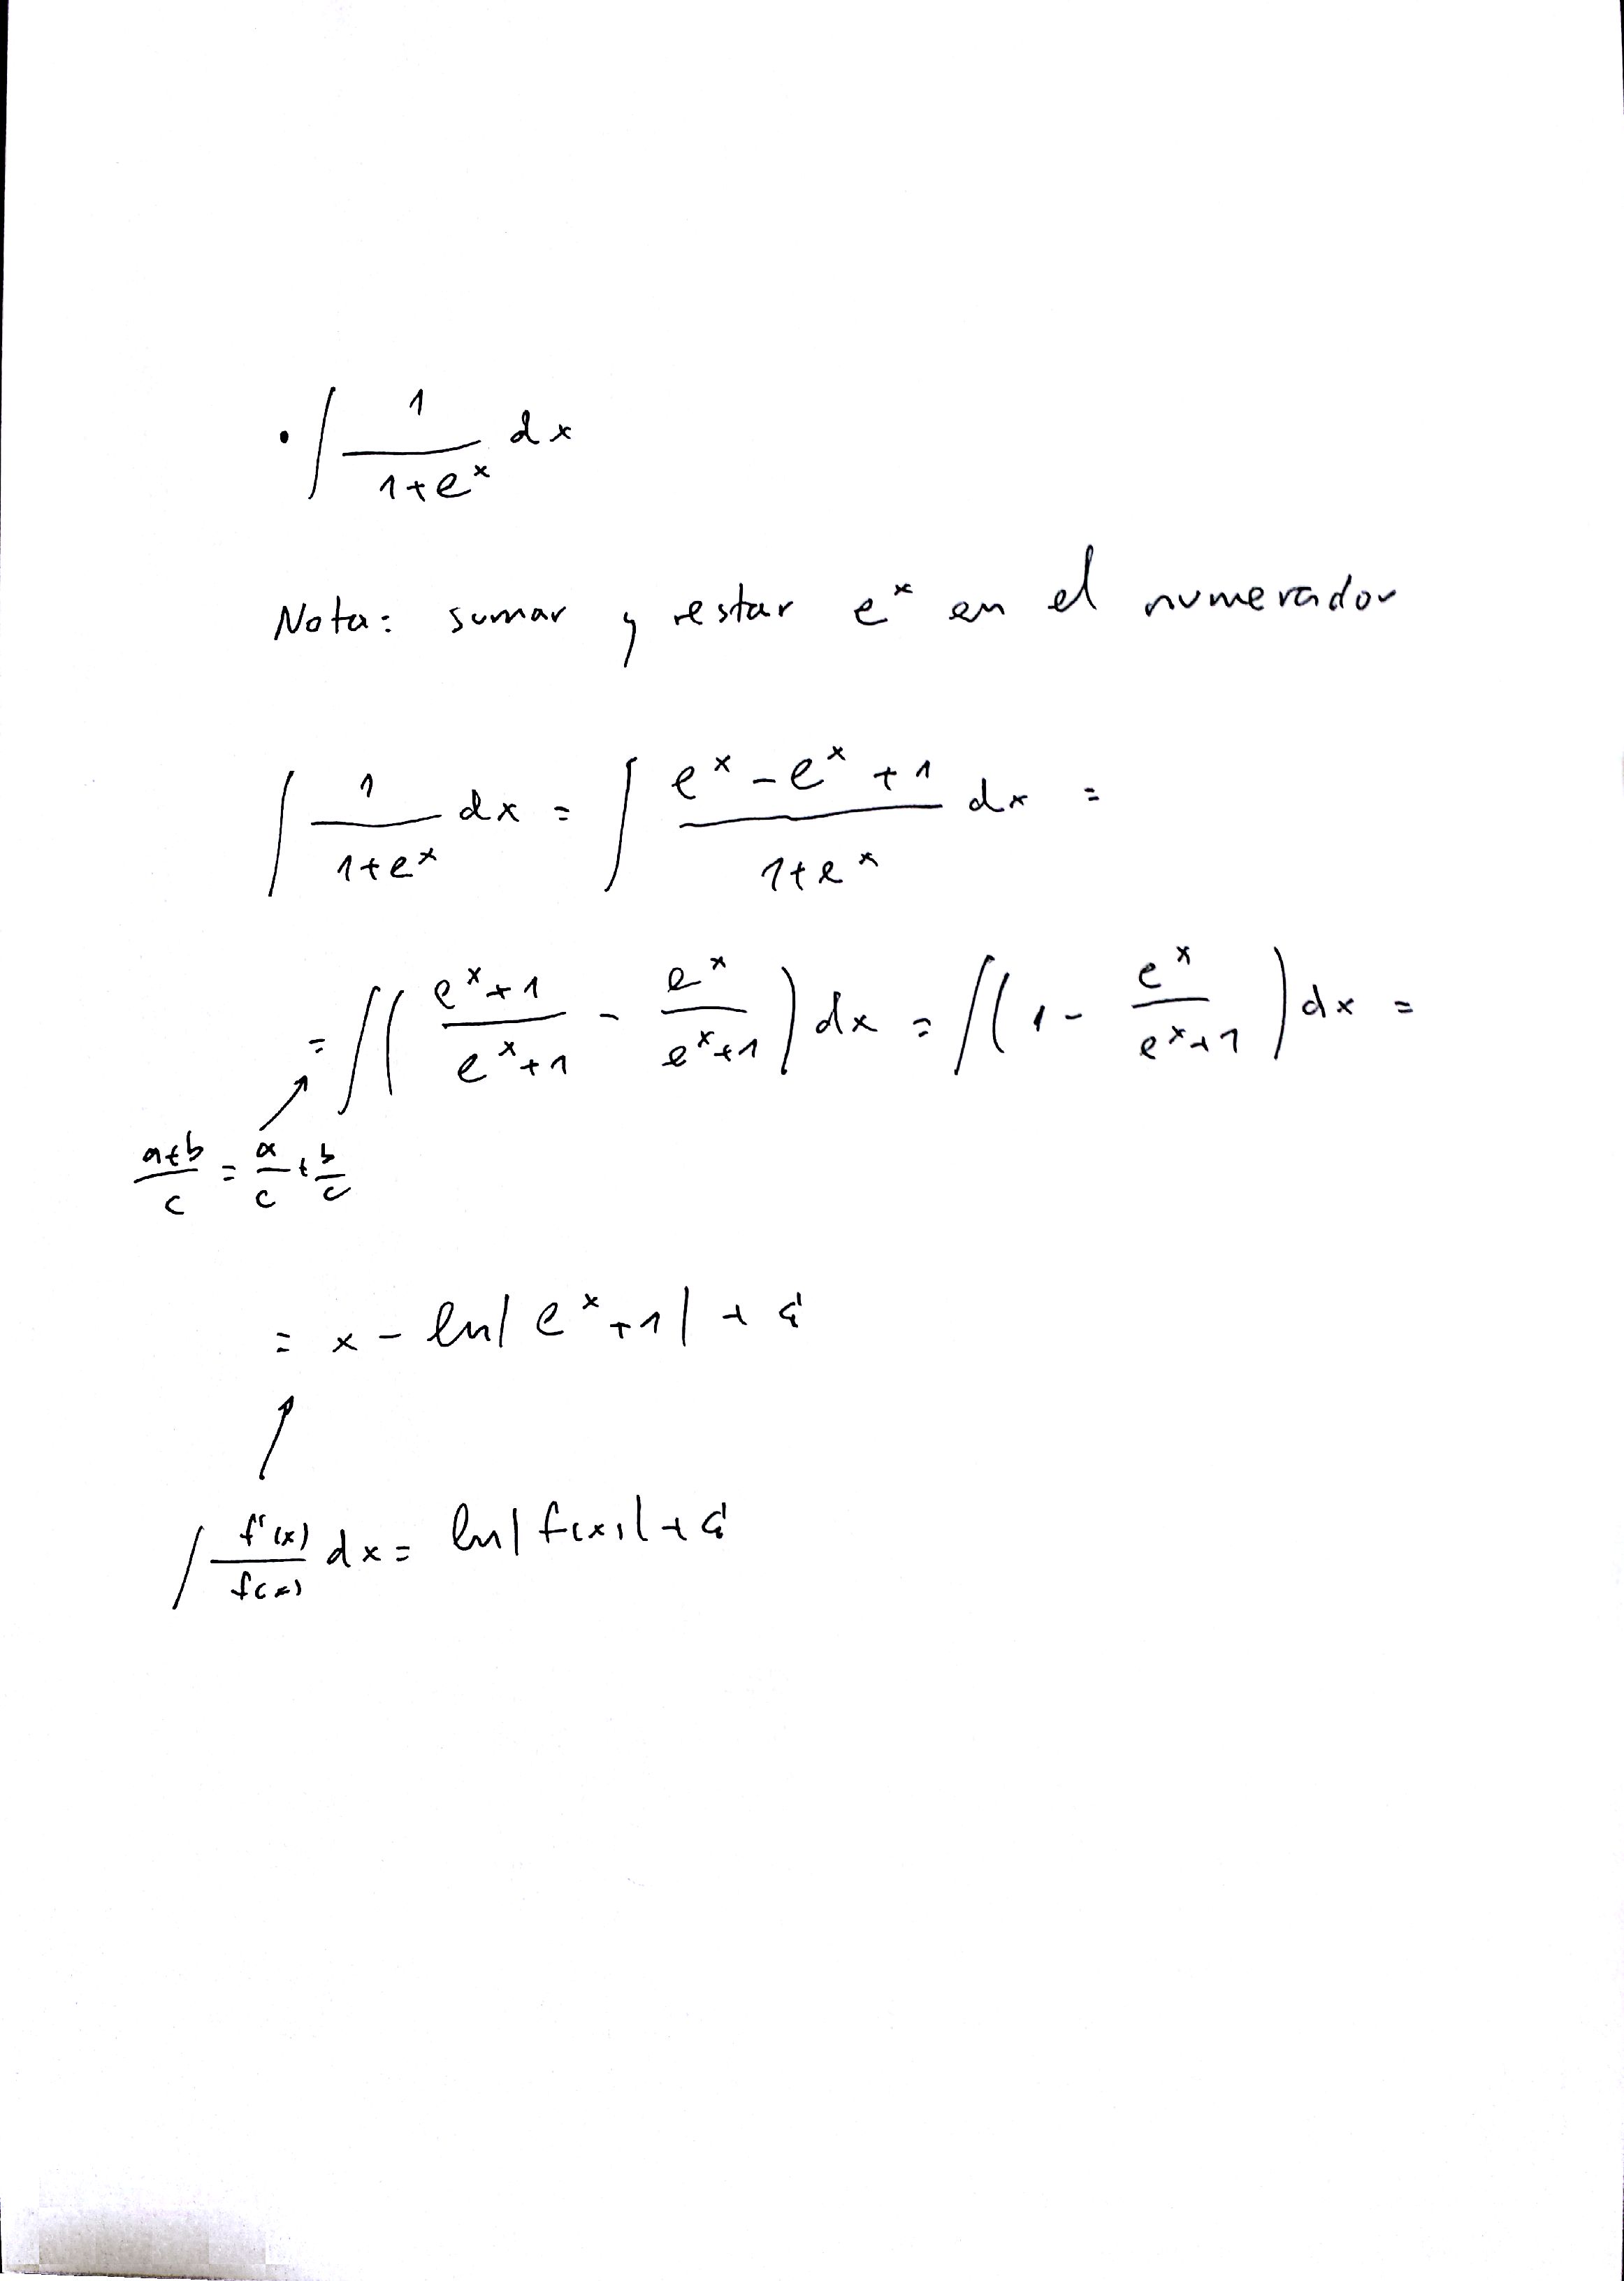 • ∫ 1/(1+eˣ) dx
Nota: sumar y restar eˣ en el numerador
∫ 1/(1+eˣ) dx = ∫ (eˣ - eˣ + 1)/(1+eˣ) dx =
= ∫ ( (eˣ+1)/(eˣ+1) - eˣ/(eˣ+1) ) dx = ∫ ( 1 - eˣ/(eˣ+1) ) dx =
(a+b)/c = a/c + b/c
= x - ln|eˣ+1| + C
∫ f'(x)/f(x) dx = ln|f(x)| + C